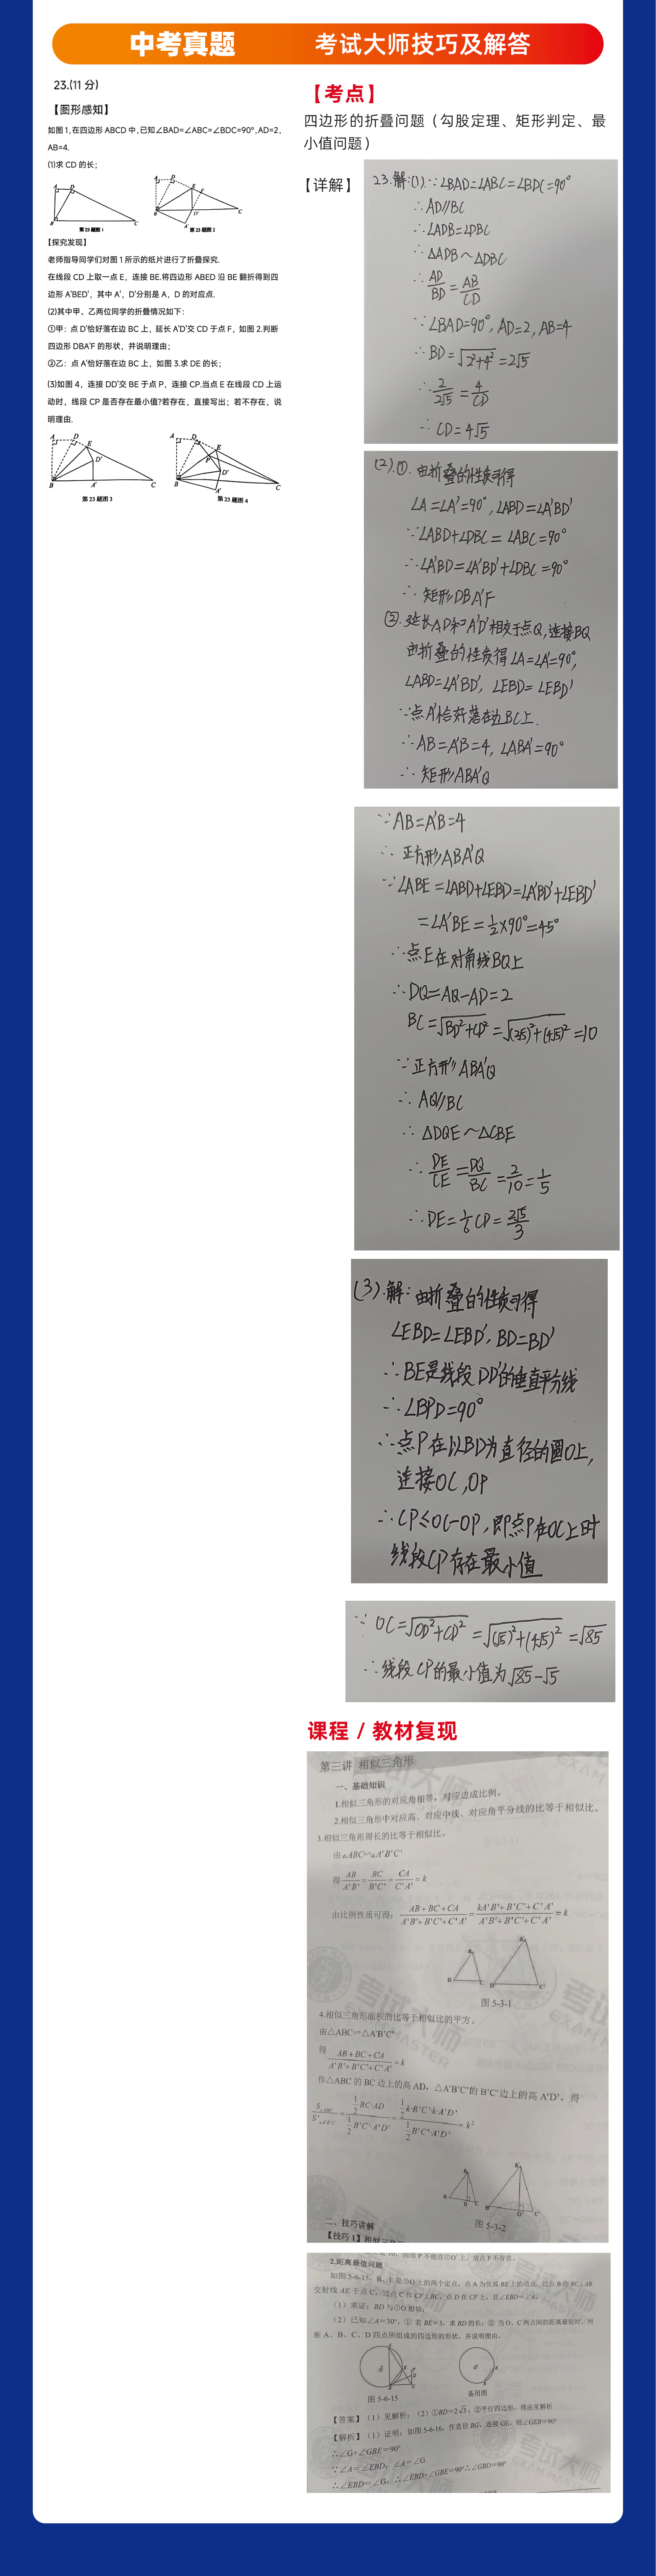 中考真题 考试大师技巧及解答
23.(11 分)
【图形感知】
如图 1,在四边形 ABCD 中,已知∠BAD=∠ABC=∠BDC=90°,AD=2,
AB=4.
(1)求 CD 的长;
第23题图1 第23题图2
【探究发现】
老师指导同学们对图 1 所示的纸片进行了折叠探究.
在线段 CD 上取一点 E，连接 BE.将四边形 ABED 沿 BE 翻折得到四
边形 A'BED'，其中 A'，D'分别是 A，D 的对应点.
(2)其中甲、乙两位同学的折叠情况如下:
①甲：点 D'恰好落在边 BC 上，延长 A'D'交 CD 于点 F，如图 2.判断
四边形 DBA'F 的形状，并说明理由；
②乙：点 A'恰好落在边 BC 上，如图 3.求 DE 的长；
(3)如图 4，连接 DD'交 BE 于点 P，连接 CP.当点 E 在线段 CD 上运
动时，线段 CP 是否存在最小值?若存在，直接写出；若不存在，说
明理由.
第23题图3 第23题图4
【考点】
四边形的折叠问题（勾股定理、矩形判定、最
小值问题）
【详解】
23.解:(1).∵∠BAD=∠ABC=∠BDC=90°
∴AD∥BC
∴∠ADB=∠DBC
∴△ADB∽△DBC
∴AD/BD=AB/CD
∵∠BAD=90°, AD=2, AB=4
∴BD=√2²+4²=2√5
∴2/2√5=4/CD
∴CD=4√5
(2).①.由折叠的性质可得
∠A=∠A'=90°,∠ABD=∠A'BD'
∵∠ABD+∠DBC=∠ABC=90°
∴∠A'BD=∠A'BD'+∠DBC=90°
∴矩形DBA'F
②.延长AD和A'D'相交于点Q,连接BQ
由折叠的性质得∠A=∠A'=90°,
∠ABD=∠A'BD', ∠EBD=∠EBD'
∵点A'恰好落在边BC上.
∴AB=A'B=4, ∠ABA'=90°
∴矩形ABA'Q
∵AB=A'B=4
∴正方形ABA'Q
∵∠ABE=∠ABD+∠EBD=∠A'BD'+∠EBD'
=∠A'BE=½×90°=45°
∴点E在对角线BQ上
∴DQ=AQ-AD=2
BC=√BD²+CD²=√(2√5)²+(4√5)²=10
∵正方形ABA'Q
∴AQ∥BC
∴△DQE∽△CBE
∴DE/CE=DQ/BC=2/10=1/5
∴DE=1/6CD=2√5/3
(3).解:由折叠的性质可得
∠EBD=∠EBD', BD=BD'
∴BE是线段DD'的垂直平分线
∴∠BPD=90°
∴点P在以BD为直径的圆O上,
连接OC,OP
∴CP≤OC-OP,即点P在OC上时
线段CP存在最小值
∵OC=√OD²+CD²=√(√5)²+(4√5)²=√85
∴线段CP的最小值为√85-√5
课程 / 教材复现
第三讲 相似三角形
一、基础知识
1.相似三角形的对应角相等，对应边成比例。
2.相似三角形中对应高、对应中线、对应角平分线的比等于相似比。
3.相似三角形周长的比等于相似比。
由△ABC∽△A'B'C'
得AB/A'B'=BC/B'C'=CA/C'A'=k
由比例性质可得：AB+BC+CA/A'B'+B'C'+C'A'=kA'B'+B'C'+C'A'/A'B'+B'C'+C'A'=k
图 5-3-1
4.相似三角形面积的比等于相似比的平方。
由△ABC∽△A'B'C'
得AB+BC+CA/A'B'+B'C'+C'A'=k
作△ABC 的 BC 边上的高 AD，△A'B'C'的 B'C'边上的高 A'D'，得
图 5-3-2
二、技巧讲解
2.距离最值问题
（1）求证：BD 与⊙O 相切；
断 A、B、C、D 四点所组成的四边形的形状，并说明理由。
图 5-6-15 备用图
【答案】（1）见解析；（2）①BD=2√3；②平行四边形，理由见解析
【解析】（1）证明：如图 5-6-16，作直径 BG，连接 GE，则∠GEB=90°
∴∠G+∠GBE=90°
∵∠A=∠EBD，∠A=∠G
∴∠EBD=∠G，∴∠EBD+∠GBE=90°∴∠GBD=90°